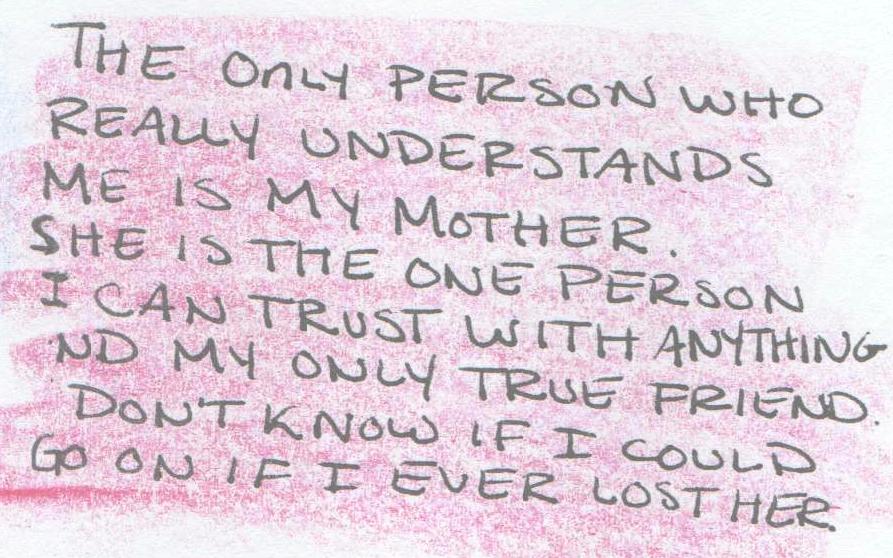 THE ONLY PERSON WHO
REALLY UNDERSTANDS
ME IS MY MOTHER.
SHE IS THE ONE PERSON
I CAN TRUST WITH ANYTHING
ND MY ONLY TRUE FRIEND.
DON'T KNOW IF I COULD
GO ON IF I EVER LOST HER.